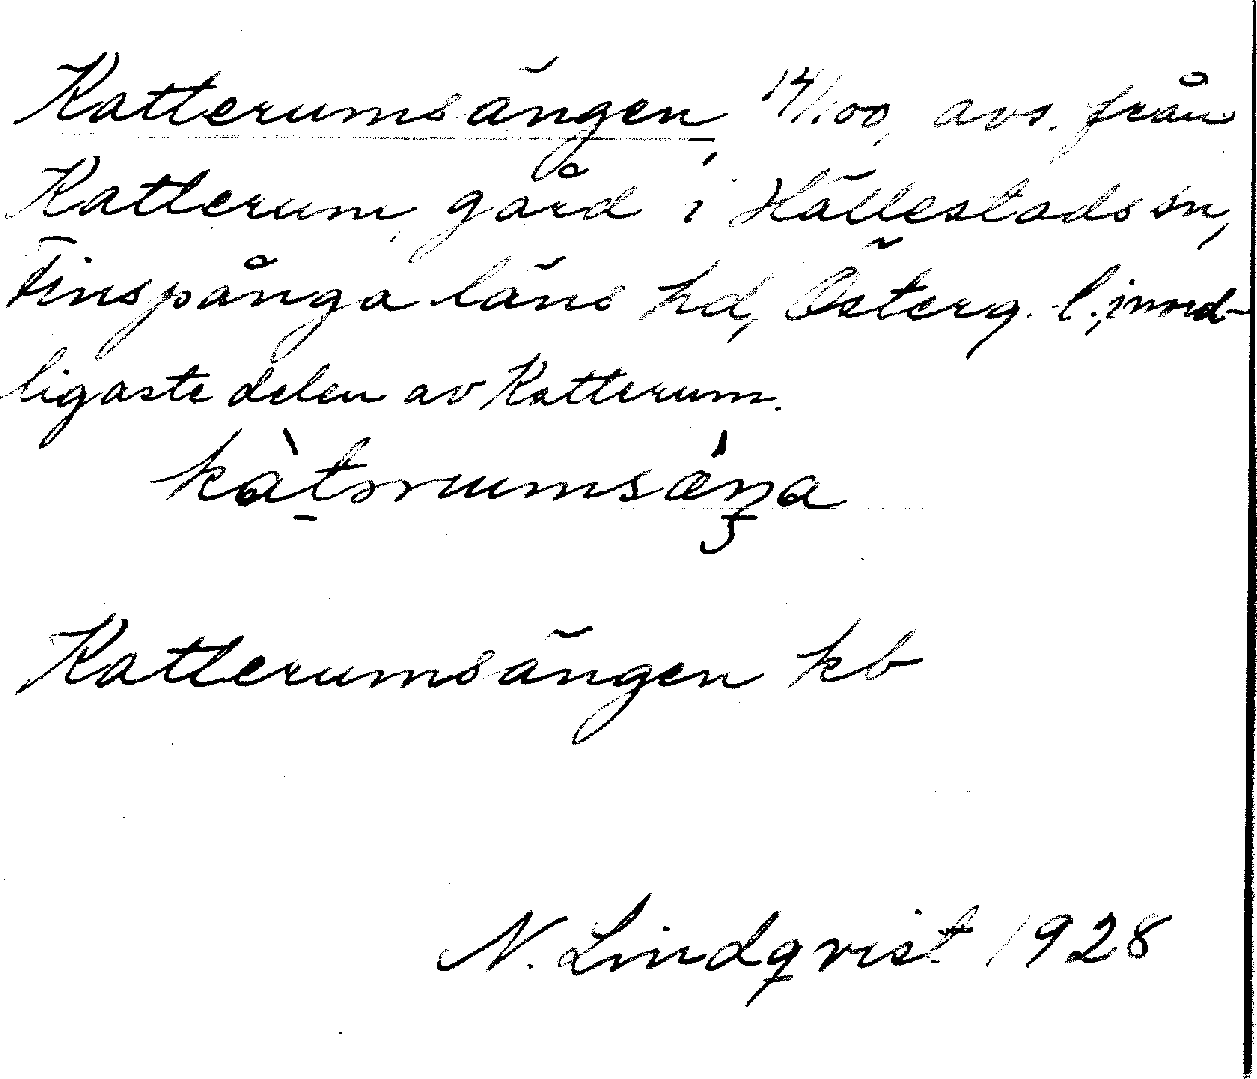 Katterumsängen, 14/100, avs. från
Katterum, gård i Hällestads sn,
Finspånga läns hd, Österg. l., i nord-
ligaste delen av Katterum.
Katterumsängen kb
N. Lindqvist 1928